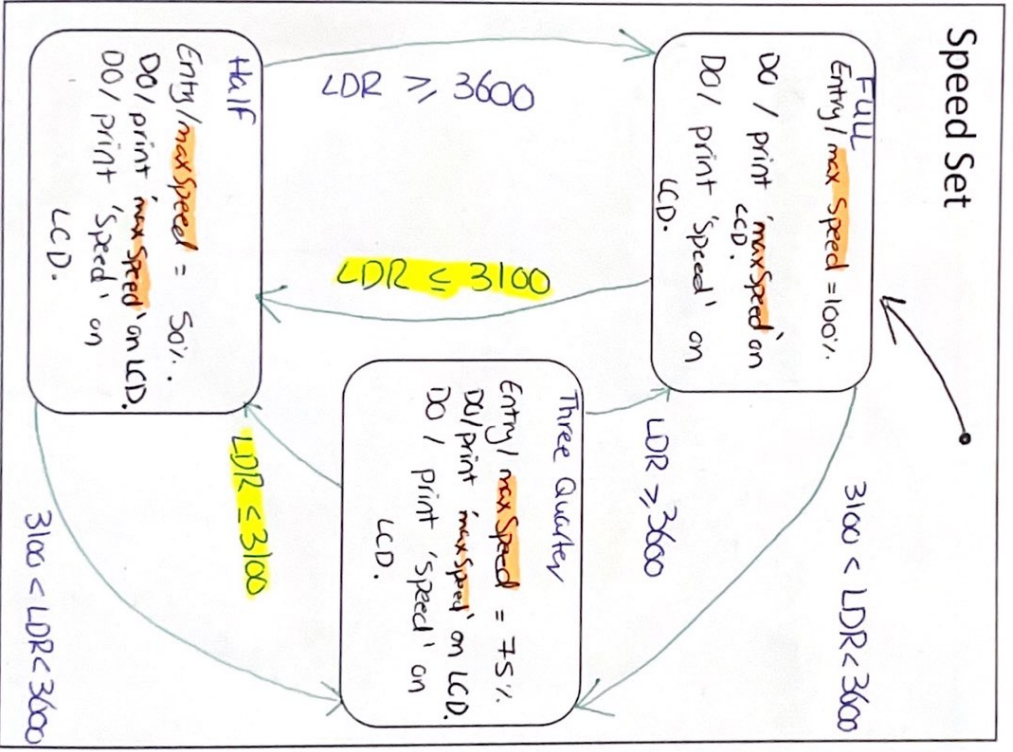 Speed Set
Full
Entry/ max Speed = 100%.
DO / print 'maxSpeed' on
LCD.
DO / print 'Speed' on
LCD.
3100 < LDR < 3600
LDR ≥ 3600
LDR ≥ 3600
LDR ≤ 3100
Three Quarter
Entry/ maxSpeed = 75%.
DO/print 'maxSpeed' on LCD.
DO / print 'Speed' on
LCD.
Half
Entry/maxSpeed = 50%.
DO/print 'maxSpeed' on LCD.
DO/ print 'Speed' on
LCD.
LDR ≤ 3100
3100 < LDR < 3600